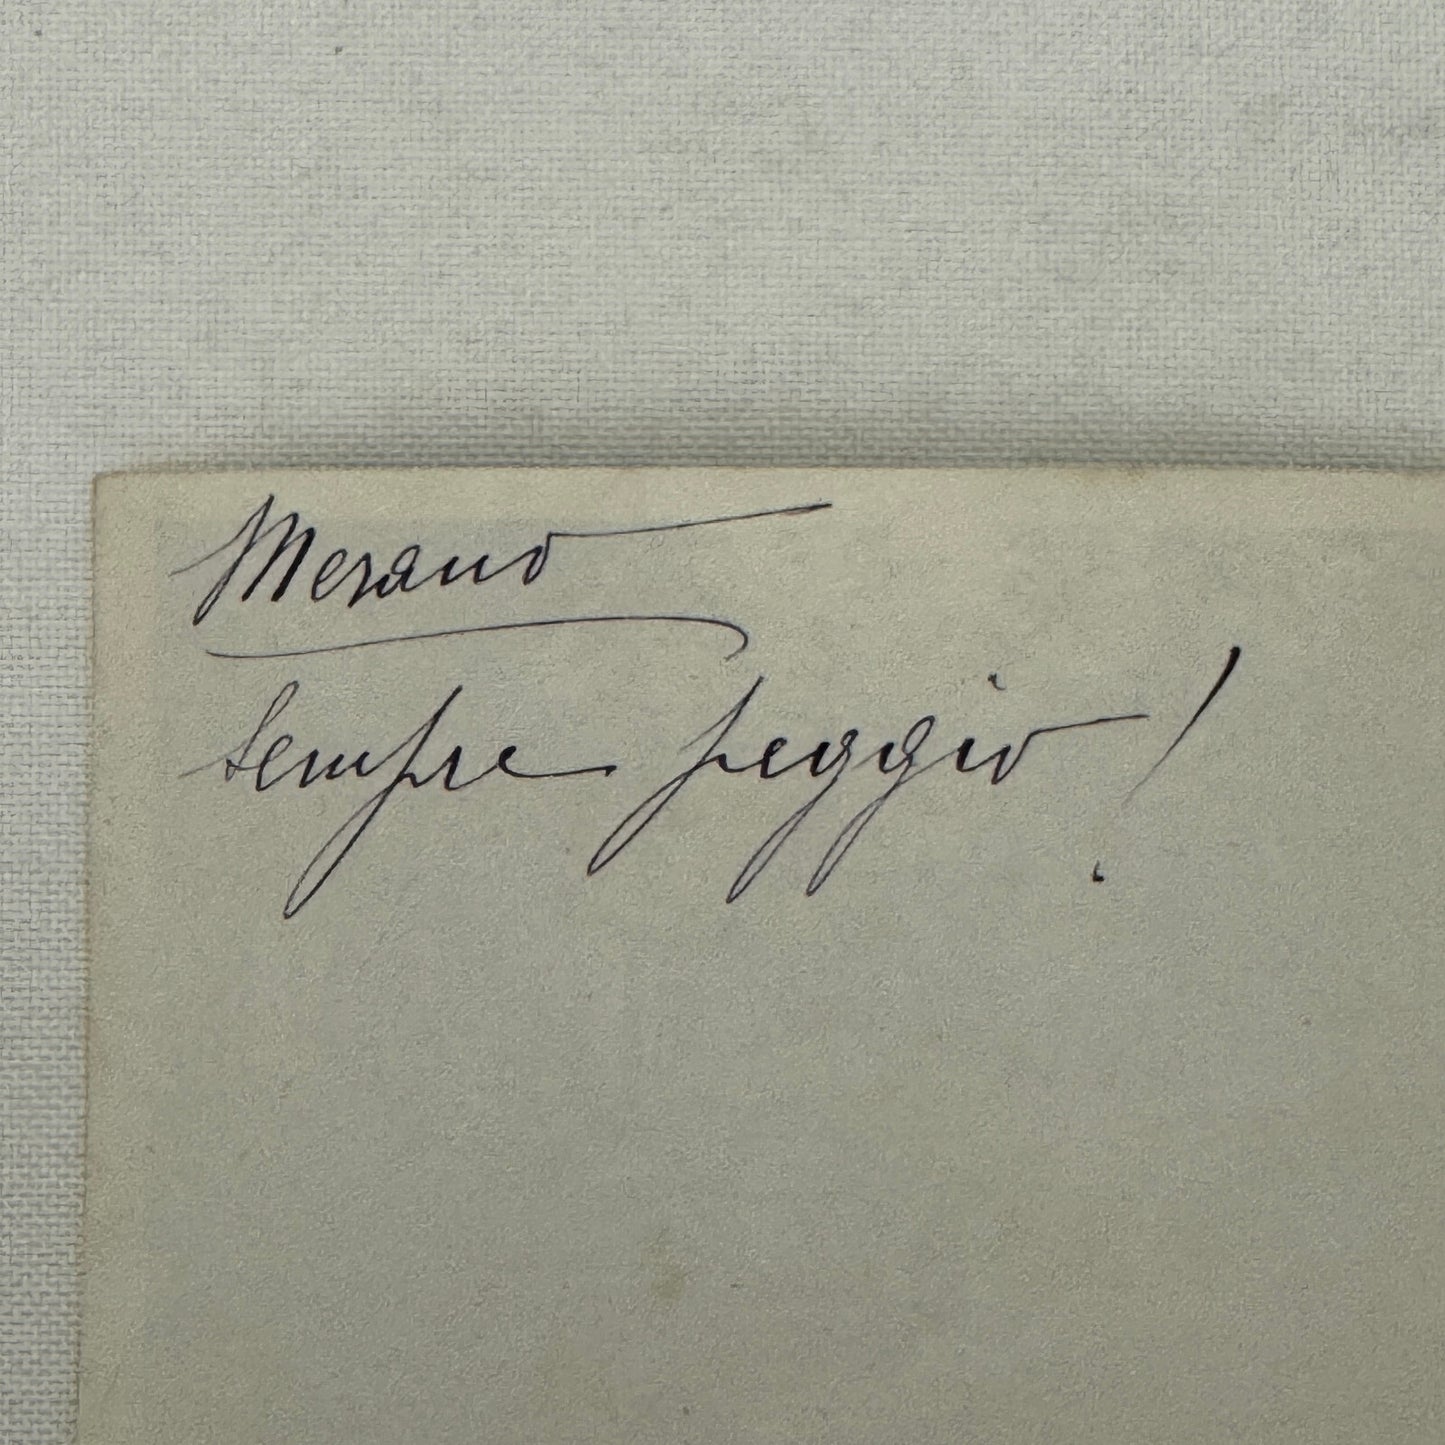 Merano
sempre peggio!